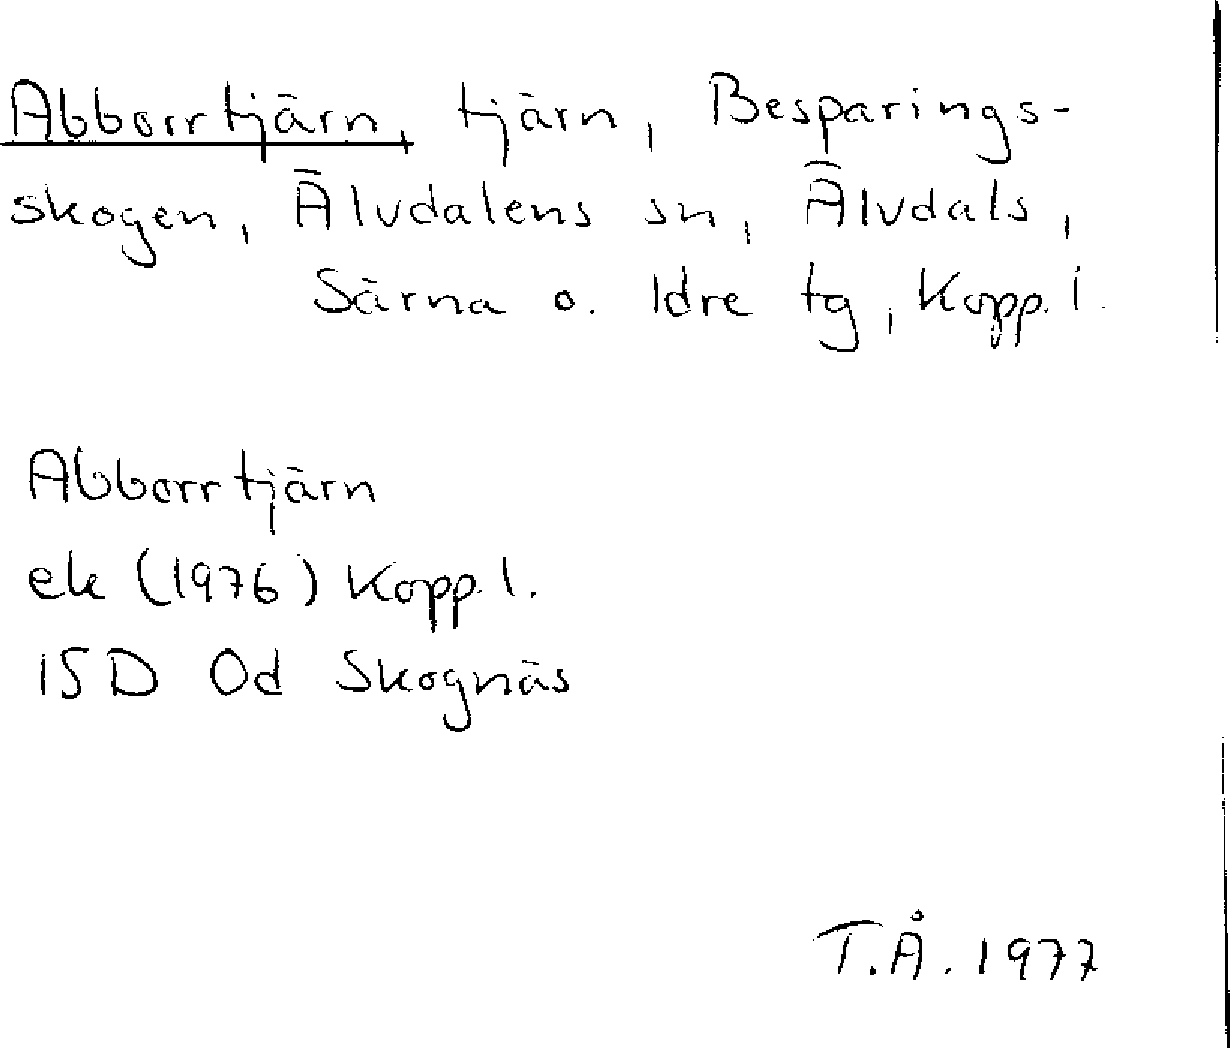 Abborrtjärn, tjärn, Besparings-
skogen, Älvdalens sn, Älvdals,
Särna o. Idre tg, Kopp. l.
Abborrtjärn
ek (1976) Kopp. l.
15D Od Skognäs
T.Å. 1977